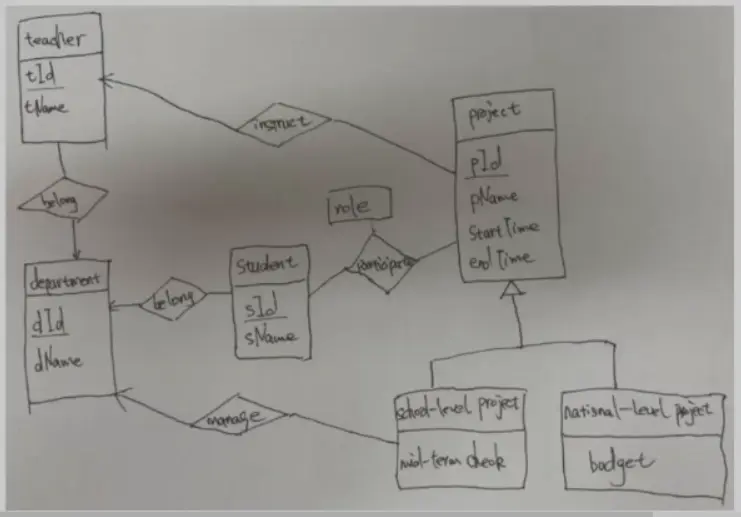 teacher
tId
tName
instruct
project
pId
pName
StartTime
endTime
belong
role
participate
department
dId
dName
belong
student
sId
sName
manage
school-level project
mid-term check
national-level project
budget